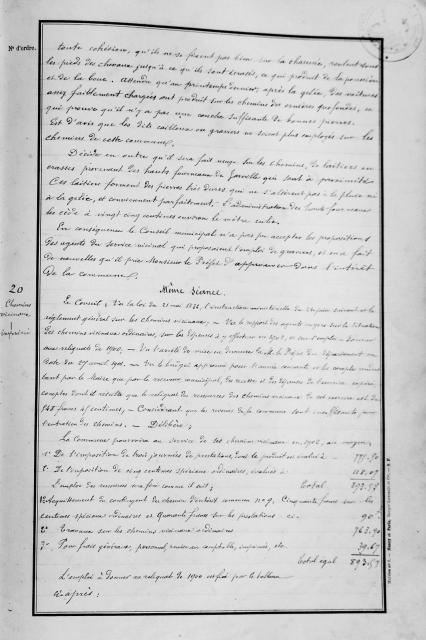 N° d'ordre.
toute cohésion, qu'ils ne se fixent pas bien sur la chaussée, roulent sous
les pieds des chevaux jusqu'à ce qu'ils sont écrasés, ce qui produit de la poussière
et de la boue. Attendu qu'au printemps dernier, après la gelée, des voitures
assez faiblement chargées ont produit sur les chemins des ornières profondes, ce
qui prouve qu'il n'y a pas une couche suffisante de bonnes pierres.
Est d'avis que les dits cailloux ou graviers ne soient plus employés sur les
chemins de cette commune.
Décide en outre qu'il sera fait usage sur les chemins, de laitiers en
crasses provenant des hauts fourneaux de Joeuville qui sont à proximité
Ces laitiers forment des pierres très dures qui ne s'altèrent pas à la pluie ni
à la gelée, et conviennent parfaitement. L'administration des hauts fourneaux
les cède à vingt cinq centimes environ le mètre cube.
En conséquence le Conseil municipal n'a pas pu accepter les propositions
des agents du service vicinal qui proposaient l'emploi de graviers, et en a fait
de nouvelles qu'il prie Monsieur le Préfet d'approuver dans l'intérêt
de la commune.
20
Chemins
vicinaux
Même séance.
Le Conseil ; Vu la loi du 21 mai 1836, l'instruction ministérielle et le
règlement général sur les chemins vicinaux, - Vu le rapport des agents voyers sur la situation
des chemins vicinaux ordinaires, sur les dépenses à y effectuer en 1902, et sur l'emploi à donner
aux reliquats de 1900, - Vu l'arrêté de mise en demeure de M. le Préfet du département en
date du 27 avril 1901. - Vu le budget approuvé pour l'année courante et les comptes
tant par le Maire que par le receveur municipal, des recettes et des dépenses de l'exercice
comptes dont il résulte que le reliquat des ressources des chemins vicinaux
francs centimes, - Considérant que les revenus de la commune sont insuffisants pour
l'entretien des chemins. - Délibère ;
La Commune pourvoira au service de ses chemins vicinaux en 1902, au moyen :
1° De l'imposition de trois journées de prestations, dont le produit est évalué à - 775.50
2° De l'imposition de cinq centimes spéciaux ordinaires, évalués à 118.07
L'emploi des ressources sera fait comme il suit ; total 893.57
1° Acquittement du contingent du chemin d'intérêt commun n° 9, Cinquante francs sur les
centimes spéciaux ordinaires et Quarante francs sur les prestations - ci - 90
2° Travaux sur les chemins vicinaux ordinaires 763.90
3° Pour frais généraux, personnel, remise au comptable, imprimés, etc. 39.67
total égal 893.57
L'emploi à donner au reliquat de 1900 est fixé par le tableau
ci-après :